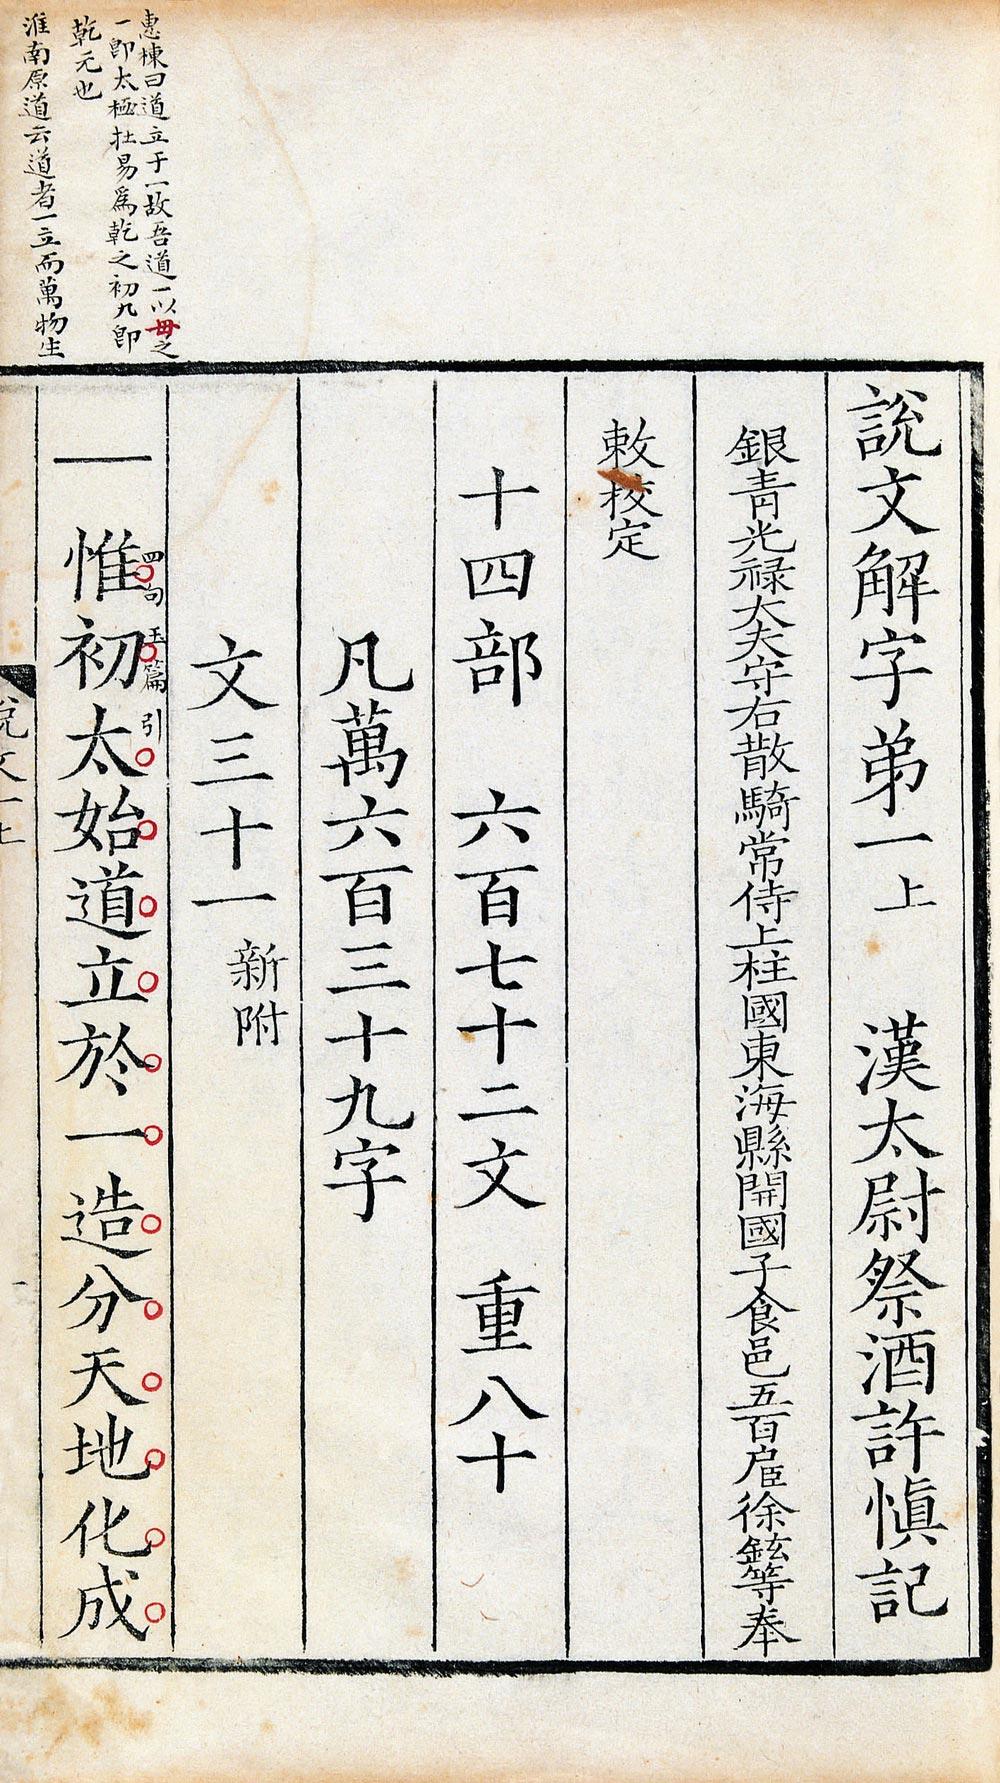 惠棟曰道立于一故吾道一以毌之
一卽太極在易爲乾之初九卽
乾元也
淮南原道云道者一立而萬物生
說文解字弟一上 漢太尉祭酒許愼記
銀青光祿大夫守右散騎常侍上柱國東海縣開國子食邑五百戶臣徐鉉等奉
敕校定
十四部 六百七十二文 重八十
凡萬六百三十九字
文三十一 新附
一 惟初太始道立於一造分天地化成
四句玉篇引
說文一上